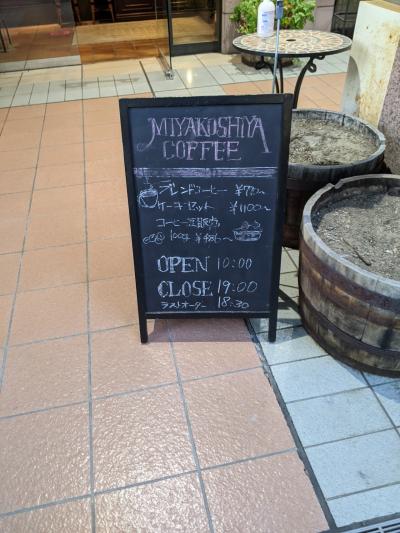 MIYAKOSHIYA
COFFEE
ブレンドコーヒー
ケーキセット ¥1100〜
コーヒー豆販売
100g
OPEN 10:00
CLOSE 19:00
ラストオーダー 18:30